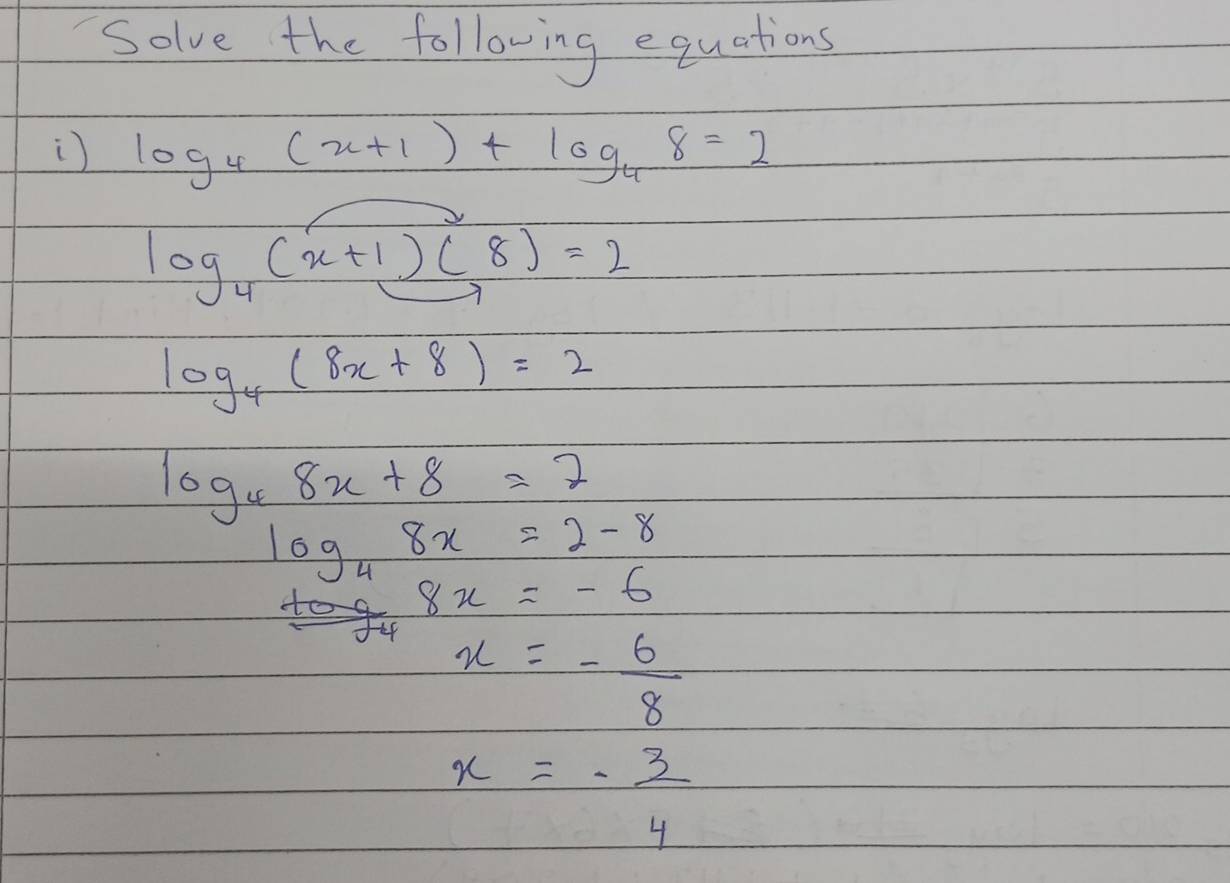 Solve the following equations
i) log₄ (x+1) + log₄ 8 = 2
log₄ (x+1)(8) = 2
log₄ (8x+8) = 2
log₄ 8x+8 = 2
log₄ 8x = 2-8
log₄ 8x = -6
x = -6/8
x = -3/4